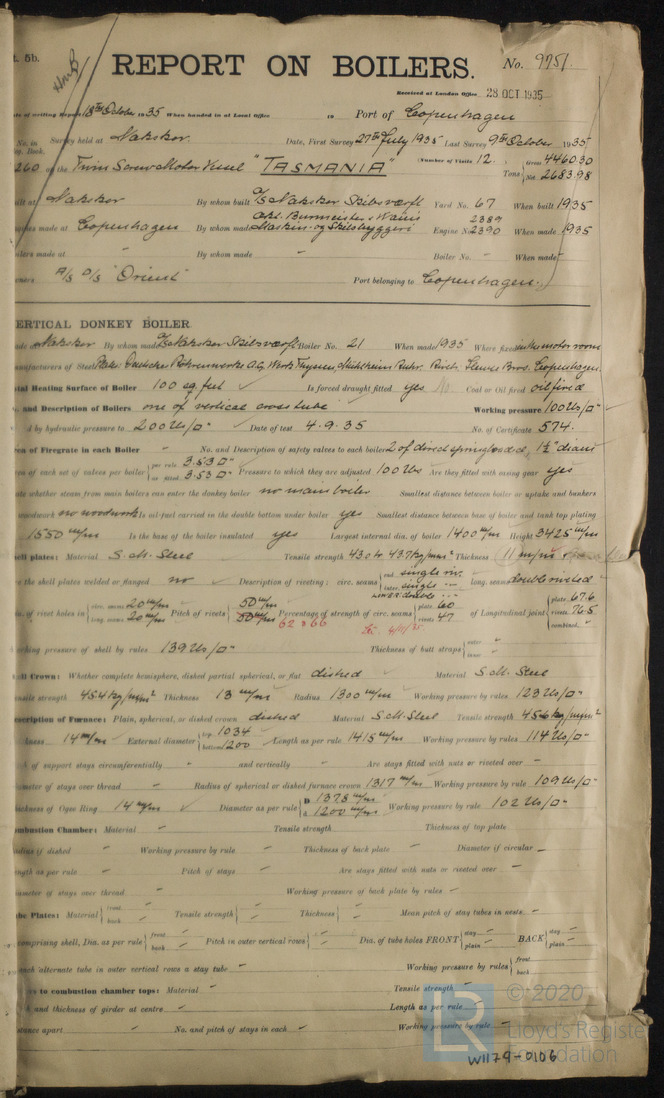 t. 5b.
REPORT ON BOILERS.
No. 9751.
Received at London Office 28 OCT 1935
te of writing Report 18th October 1935 When handed in at Local Office 19 Port of Copenhagen
No. in Survey held at Nakskov Date, First Survey 27th July 1935 Last Survey 9th October 1935
g. Book. (Number of Visits 12.)
260 on the Twin Screw Motor Vessel "TASMANIA" Tons Gross 4460.30 Net 2683.98
ilt at Nakskov By whom built A/S Nakskov Skibsværft Yard No. 67 When built 1935
Akt. Burmeister & Wain's
ines made at Copenhagen By whom made Maskin- og Skibsbyggeri Engine No. 2389 2390 When made 1935
ilers made at " By whom made " Boiler No. " When made "
ners A/S D/S "Orient" Port belonging to Copenhagen.
ERTICAL DONKEY BOILER.
ade at Nakskov By whom made A/S Nakskov Skibsværft Boiler No. 21 When made 1935 Where fixed in the motor room
nufacturers of Steel Plates: Deutsche Röhrenwerke A.G. Werk Thyssen, Mülheim Ruhr. Bros. Copenhagen.
tal Heating Surface of Boiler 100 sq. feet Is forced draught fitted yes No. Coal or Oil fired oil fired
. and Description of Boilers one of vertical cross tube Working pressure 100 lbs/□"
d by hydraulic pressure to 200 lbs/□" Date of test 4.9.35 No. of Certificate 574.
rea of Firegrate in each Boiler " No. and Description of safety valves to each boiler 2 of direct springloaded, 1½" diam
rea of each set of valves per boiler per rule 3.53 □" as fitted 3.53 □" Pressure to which they are adjusted 100 lbs Are they fitted with easing gear yes
ate whether steam from main boilers can enter the donkey boiler no main boiler Smallest distance between boiler or uptake and bunkers
woodwork no woodwork Is oil fuel carried in the double bottom under boiler yes Smallest distance between base of boiler and tank top plating
1550 m/m Is the base of the boiler insulated yes Largest internal dia. of boiler 1400 m/m Height 3425 m/m
ell plates: Material S.M. Steel Tensile strength 43.0 to 49.7 kg/mm² Thickness 11 m/m
e the shell plates welded or flanged no Description of riveting: circ. seams end single riv. inter. single long. seams double riveted
ia. of rivet holes in circ. seams 20 m/m long. seams 20 m/m Pitch of rivets 50 m/m 50 m/m Percentage of strength of circ. seams plate 60 rivets 47 of Longitudinal joint plate 67.6 rivets 76.5 combined "
62 & 66 4/11/35
orking pressure of shell by rules 139 lbs/□" Thickness of butt straps outer " inner "
ell Crown: Whether complete hemisphere, dished partial spherical, or flat dished Material S.M. Steel
nsile strength 45.4 kg/mm² Thickness 13 m/m Radius 1300 m/m Working pressure by rules 123 lbs/□"
escription of Furnace: Plain, spherical, or dished crown dished Material S.M. Steel Tensile strength 45.6 kg/mm²
kness 14 m/m External diameter top 1034 bottom 1200 Length as per rule 1415 m/m Working pressure by rules 114 lbs/□"
h of support stays circumferentially " and vertically " Are stays fitted with nuts or riveted over "
ameter of stays over thread " Radius of spherical or dished furnace crown 1317 m/m Working pressure by rule 109 lbs/□"
hickness of Ogee Ring 14 m/m Diameter as per rule D 1378 m/m d 1200 m/m Working pressure by rule 102 lbs/□"
ombustion Chamber: Material " Tensile strength Thickness of top plate
adius if dished " Working pressure by rule " Thickness of back plate " Diameter if circular "
ngth as per rule " Pitch of stays " Are stays fitted with nuts or riveted over "
iameter of stays over thread " Working pressure of back plate by rules "
be Plates: Material front " back " Tensile strength " Thickness " Mean pitch of stay tubes in nests "
comprising shell, Dia. as per rule front " back " Pitch in outer vertical rows " Dia. of tube holes FRONT stay " plain " BACK stay " plain "
each alternate tube in outer vertical rows a stay tube " Working pressure by rules front back
rs to combustion chamber tops: Material " Tensile strength "
h and thickness of girder at centre " Length as per rule "
stance apart " No. and pitch of stays in each " Working pressure by rule "
© 2020
Lloyd's Register
Foundation
W1179-0106